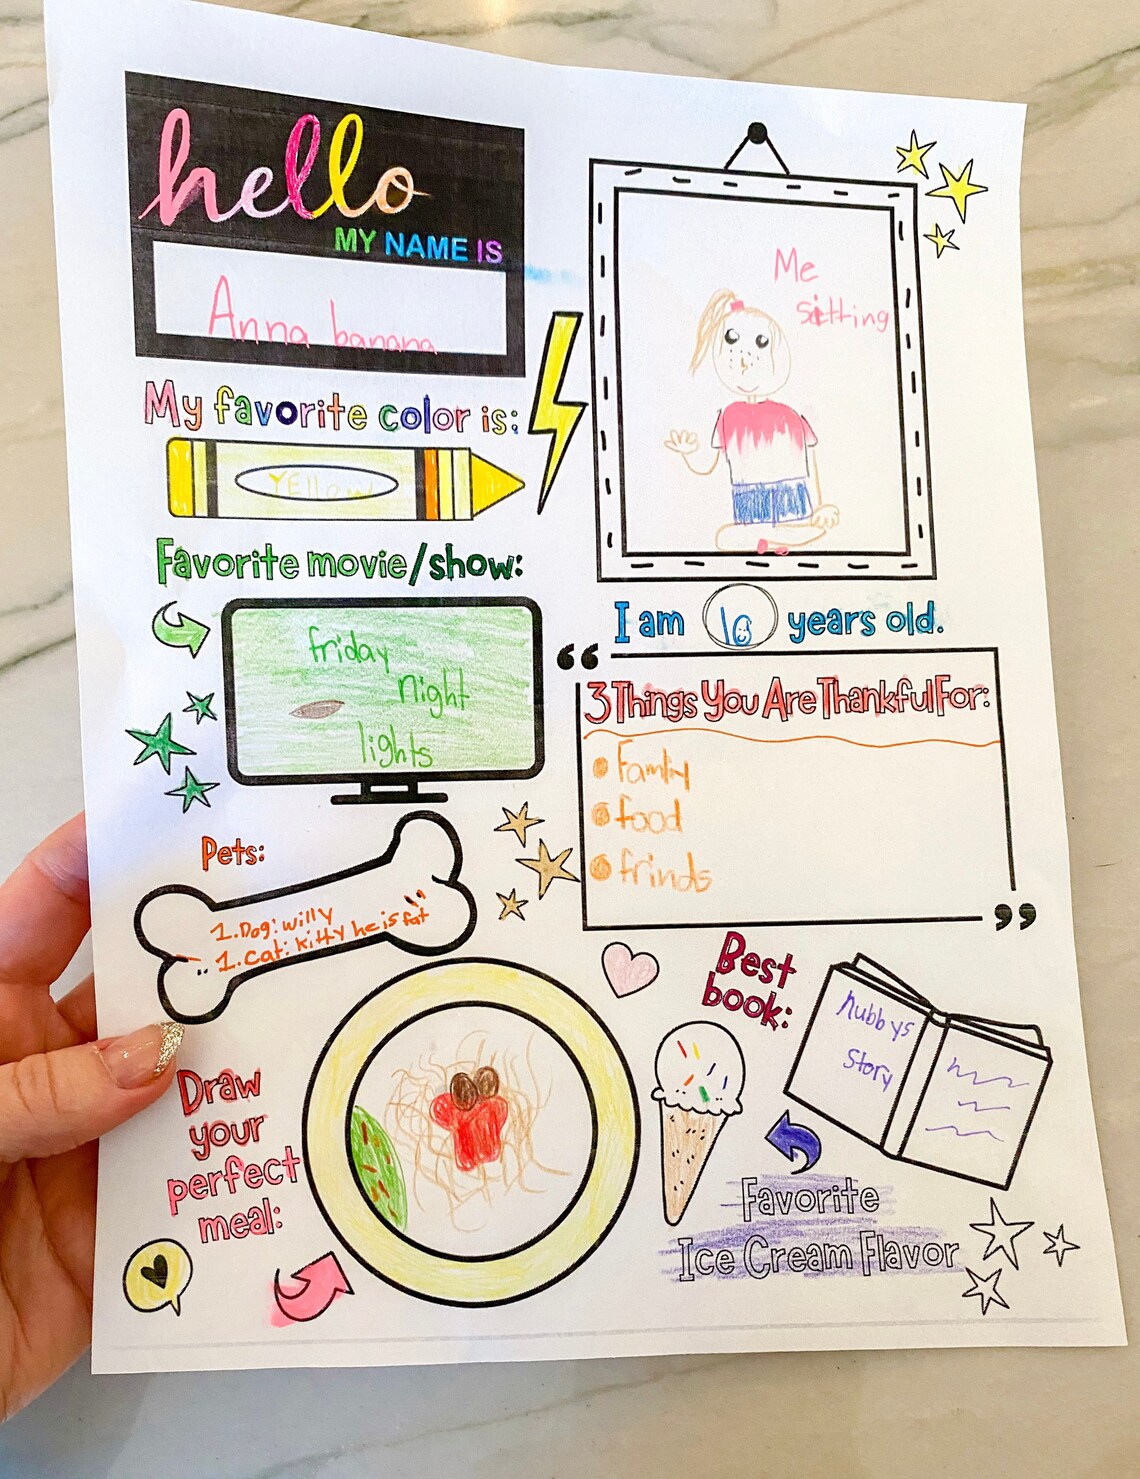 hello
MY NAME IS
Anna banana
Me
sitting
My favorite color is:
YEllow
Favorite movie/show:
friday
night
lights
I am 10 years old.
3 Things You Are Thankful For:
Family
food
frinds
Pets:
1. Dog: willy
1. Cat: kitty he is fat
Best
book:
hubbys
Story
Draw
your
perfect
meal:
Favorite
Ice Cream Flavor